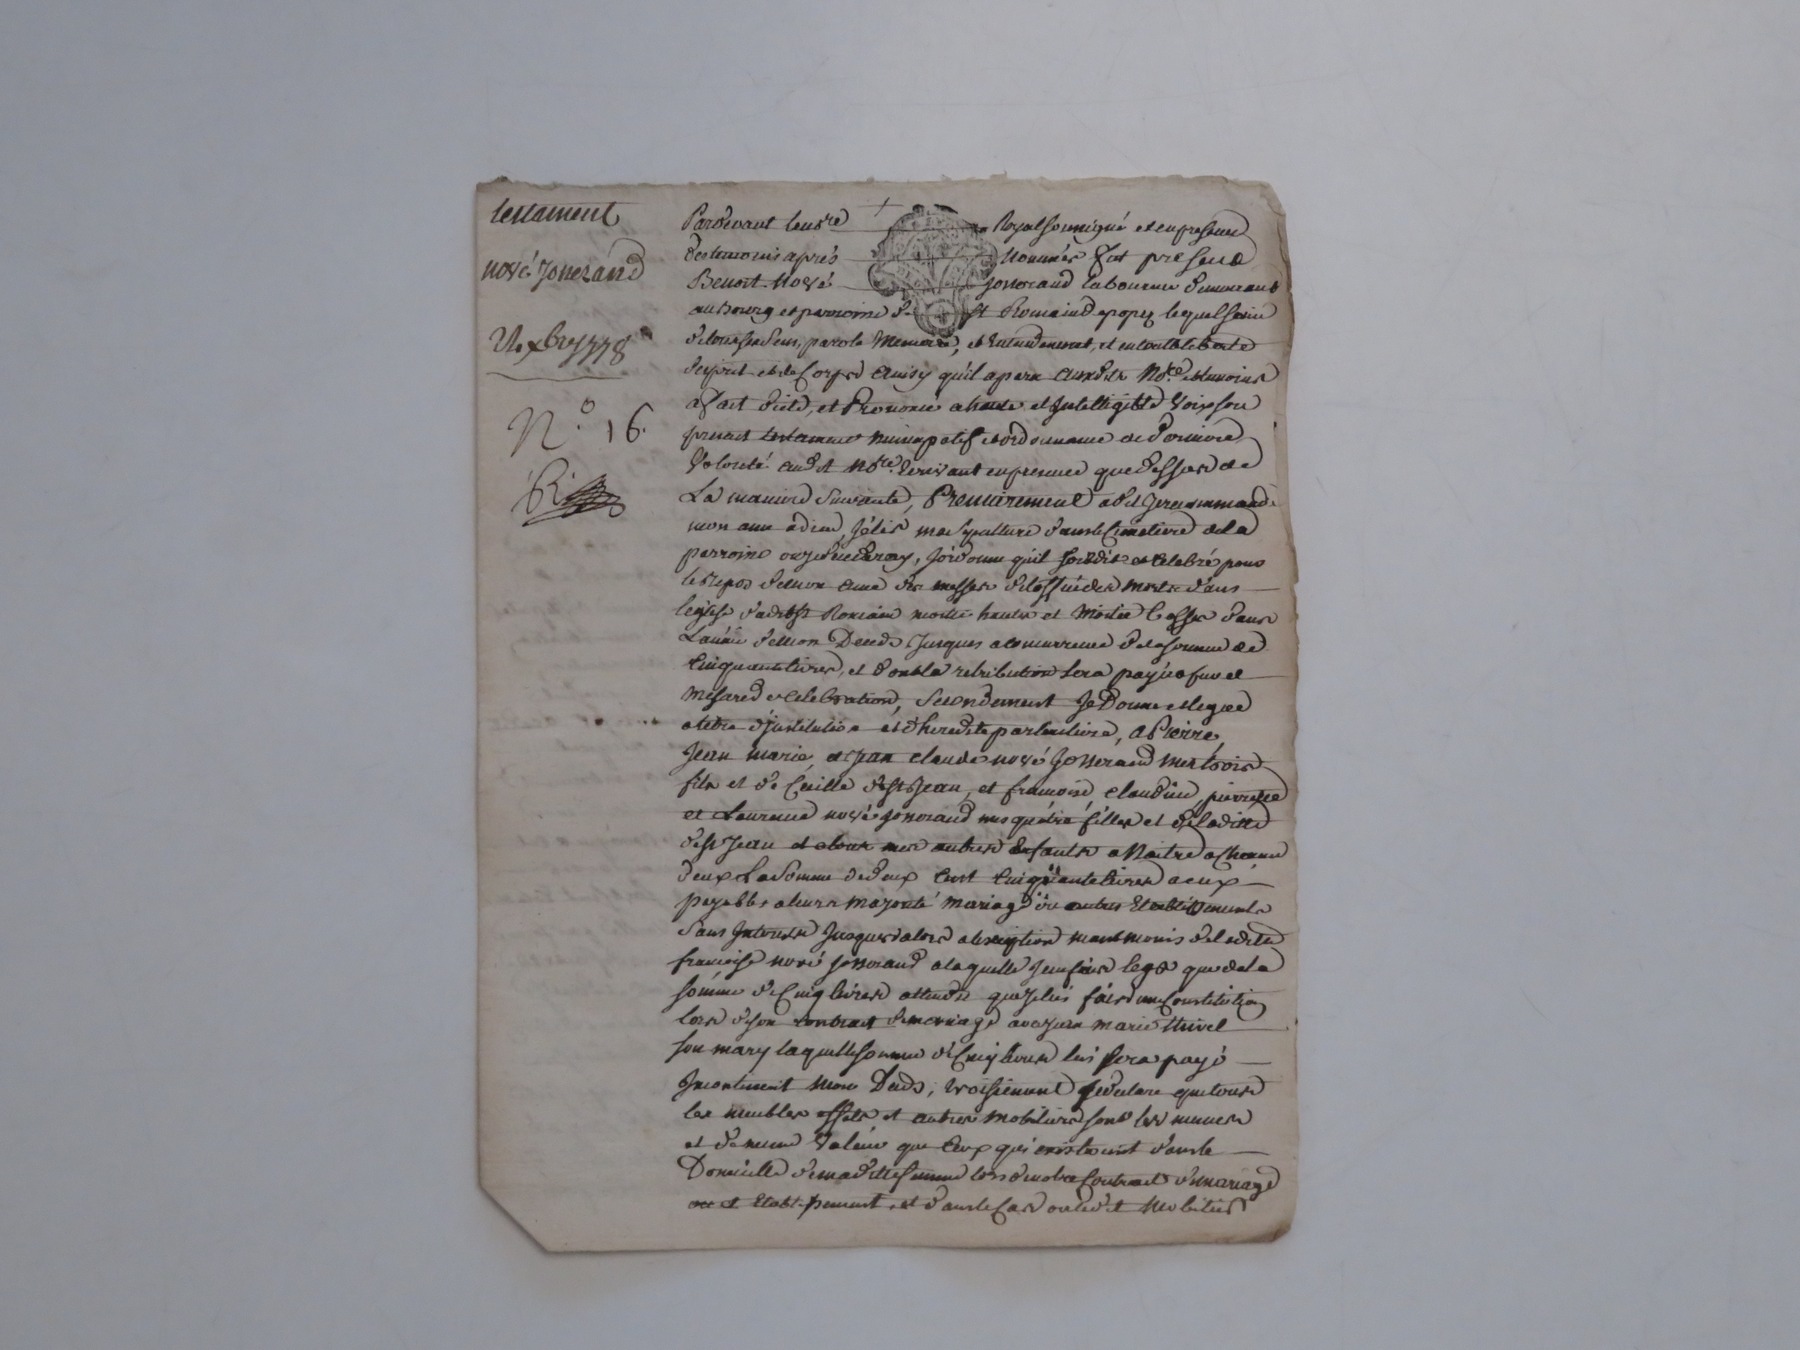 testament
nové Jonerand
xbre 1778
N.º 16.
Pardevant le nore Royal soussigné et en presence
des temoins aprés Nommés fut present
Benoit Nové Jonorand laboureur demeurant
au bourg et parroisse de St Romain de popez lequel sain
de tous ses sens, parole Memoire, et Entendement, et en toute liberté
d'esprit et de Corps ainsy qu'il a paru auxdits No.re et temoins
a fait dicté, et Prononcé a haute et Intelligible Voix son
present testament nuncupatif et ordonnance de Derniere
Volonté audit No.re Ecrivant en presence que dessus de
La maniere suivante, Premierement a dit je recommande
mon ame a dieu J'élis ma sepulture dans le Cimetiere de la
parroisse ou je decederay, J'ordonne qu'il soit dit et celebré pour
le repos de mon ame des messes de l'office des morts dans
l'eglise dudit St Romain moitié hautes et Moitié basses dans
L'année de mon Deceds Jusques a concurrence de la somme de
Cinquante livres, et dont la retribution sera payée a fur et
mesure de celebration, Secondement Je Donne et legue
a titre d'institution et d'heredité particuliere, a Pierre,
Jean marie, et Jean claude nové Jonerand mes trois
fils et de Cecille de St Jean, et francoise claudine, pierrette
et Laurence nové Jonorand mes quatre filles et de laditte
de St Jean et a tous mes autres Enfants a Naitre a Chacun
d'eux La Somme de deux Cent Cinquante livres a eux
payables a leurs majorité mariage ou autres Etablissements
sans Interests Jusques alors a l'exception neanmoins de ladite
francoise nové Jonorand a laquelle Je ne fais legs que de la
somme de Cinq livres attendu que je lui fais une Constitution
lors de son contract de mariage avec Jean marie
son mary laquelle somme de Cinq livres lui sera payé
Incontinent mon Deceds, troisiement Je declare que tous
les meubles effets et autres mobiliers sont les memes
et de meme Valeur que Ceux qui existoient dans le
Domicille de maditte femme lors de notre Contract de mariage
et dans le Cas ou ledit Mobilier